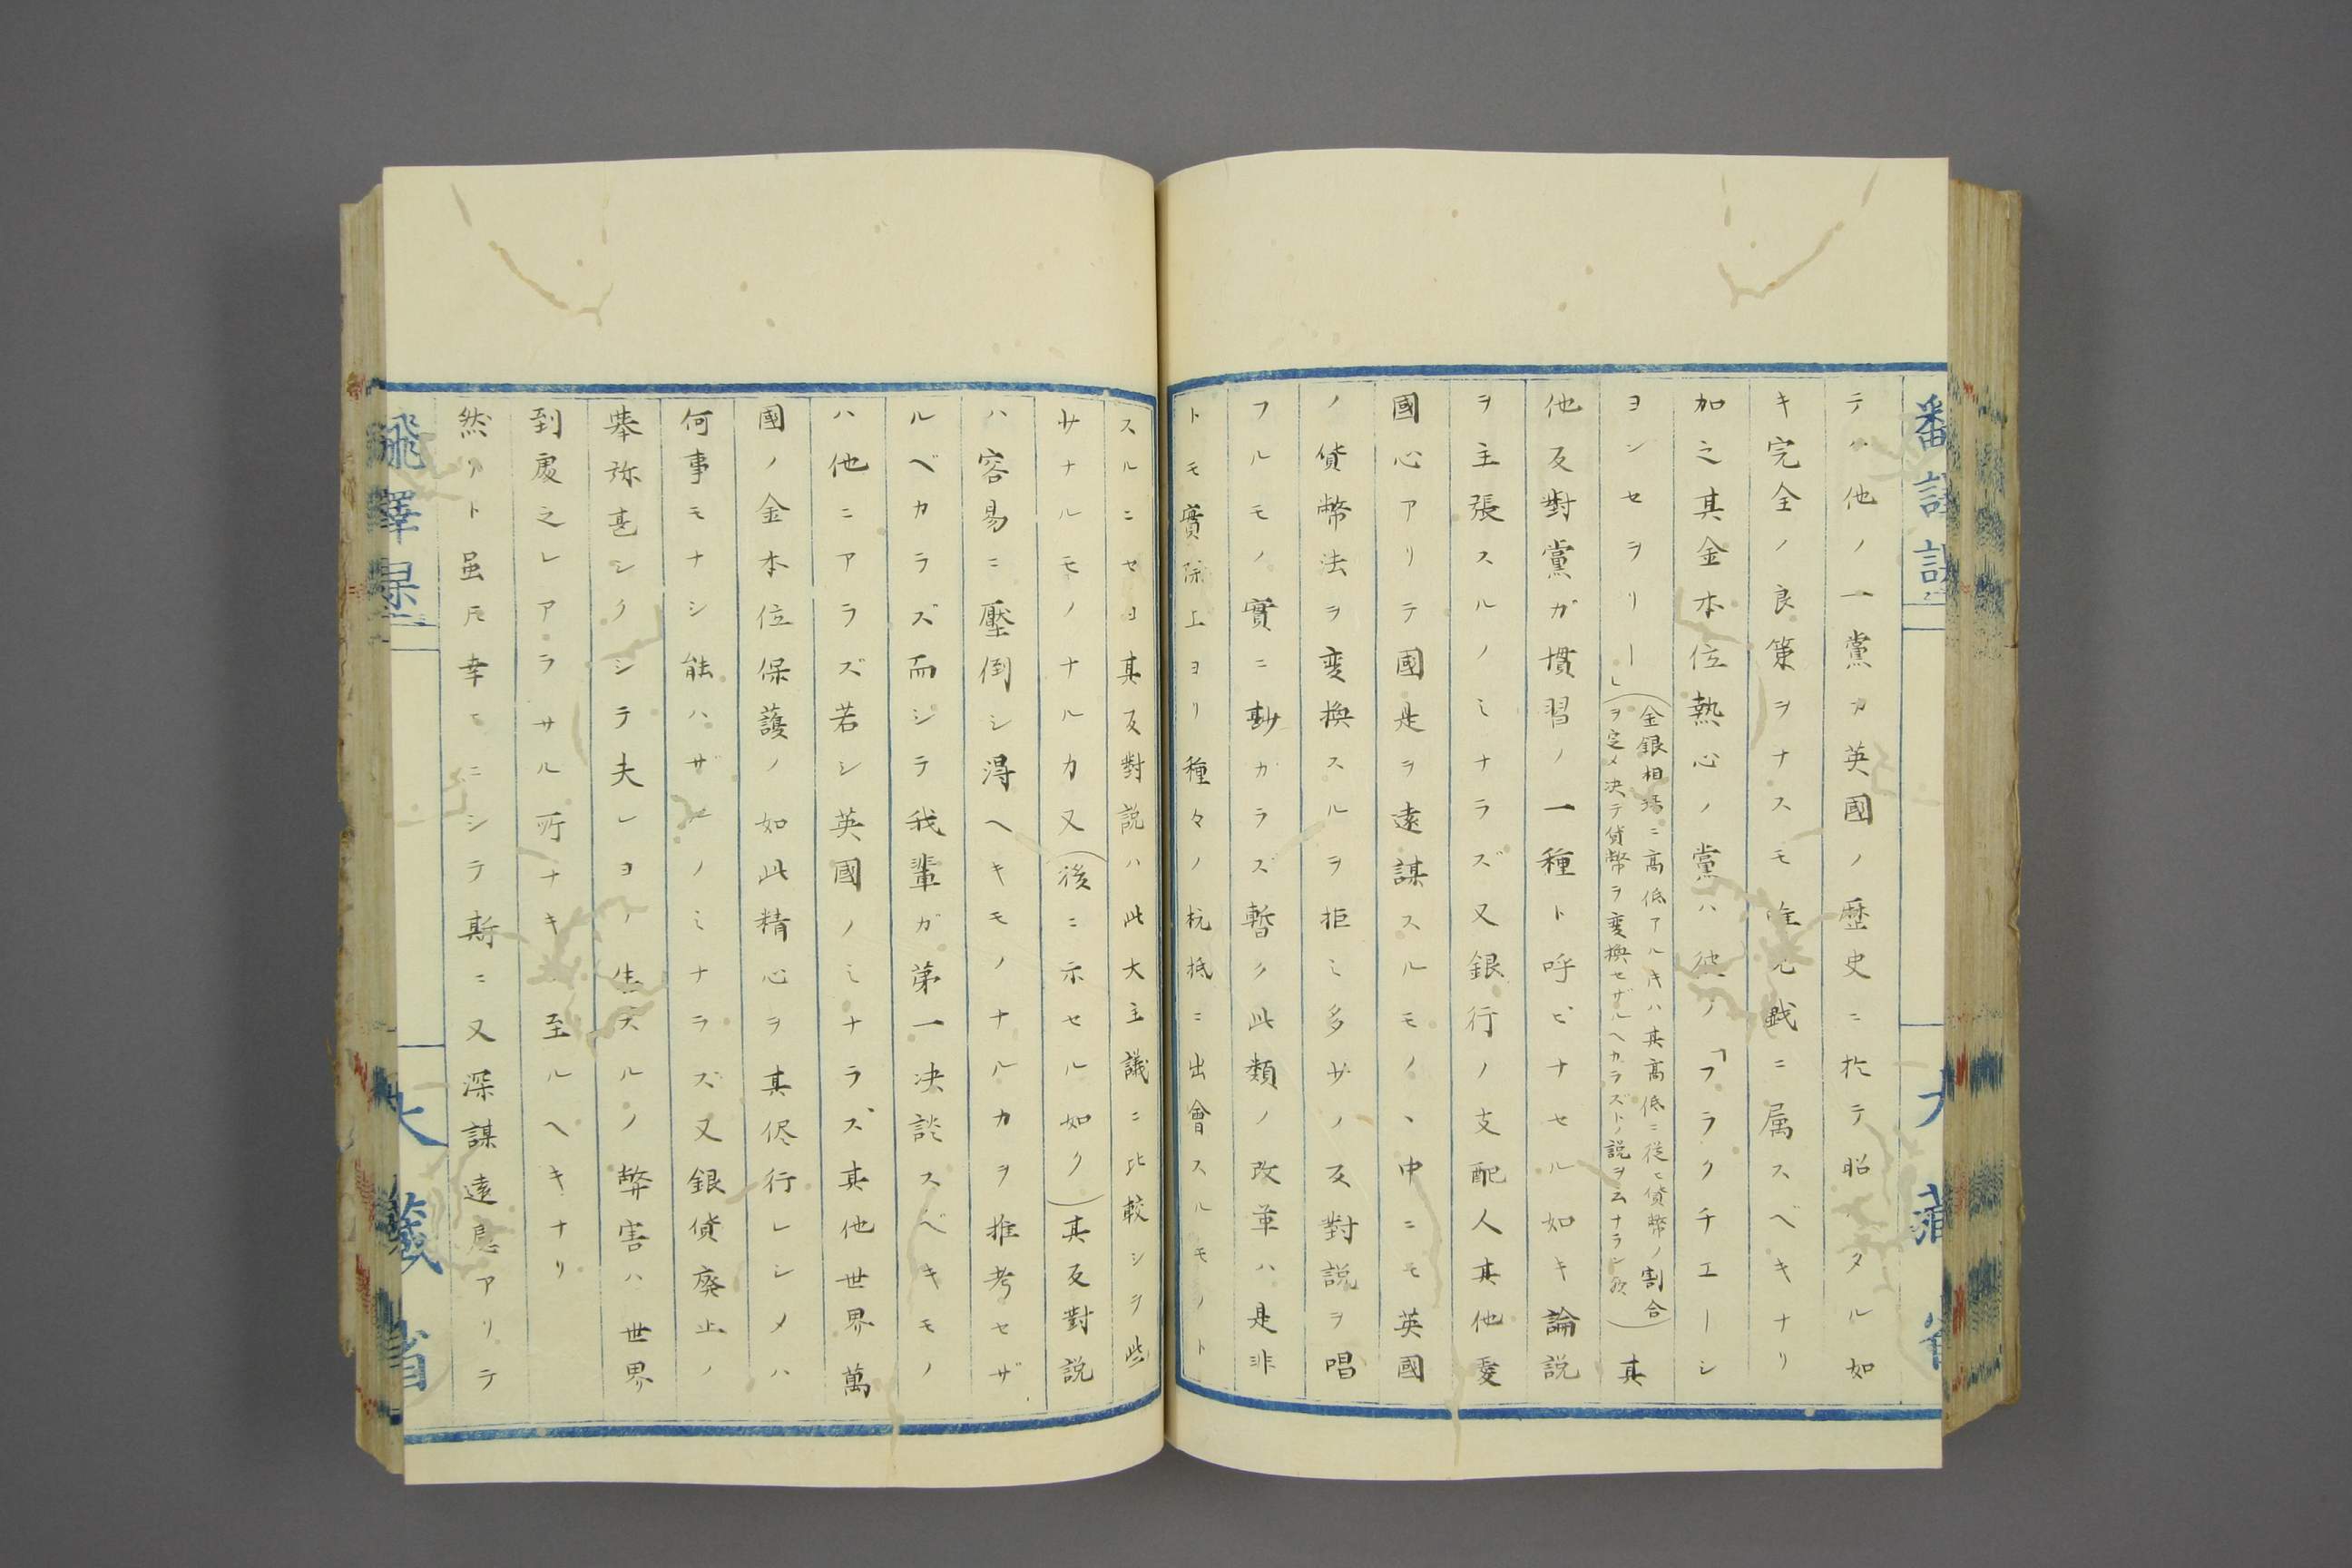 テハ他ノ一黨カ英國ノ歷史ニ扵テ昭々タル如
キ完全ノ良策ヲナスモ唯児戯ニ属スベキナリ
加之其金本位熱心ノ黨ハ彼ノ「フラクチエーシ
ヨンセヲリー」(金銀相場ニ高低アルキハ其高低ニ従ヒ貨幣ノ割合
ヲ定メ决テ貨幣ヲ変換セザルヘカラズトノ説ヲ云ナラン歟)其
他反對黨ガ慣習ノ一種ト呼ビナセル如キ論説
ヲ主張スルノミナラズ又銀行ノ支配人其他憂
國心アリテ國是ヲ遠謀スルモノヽ中ニモ英國
ノ貨幣法ヲ変換スルヲ拒ミ多少ノ反對説ヲ唱
フルモノ實ニ尠ガラズ暫ク此類ノ改革ハ是非
トモ實際上ヨリ種々ノ抗抵ニ出會スルモノト
スルニセヨ其反對説ハ此大主議ニ比較シヲ些
少ナルモノナルカ又(後ニ示セル如ク)其反對説
ハ容易ニ壓倒シ淂ヘキモノナルカヲ推考セザ
ルベカラズ而シテ我輩ガ第一决談スベキモノ
ハ他ニアラズ若シ英國ノミナラズ其他世界萬
國ノ金本位保護ノ如此精心ヲ其侭行レシメハ
何事モナシ能ハザルノミナラズ又銀貨廢止ノ
挙弥甚シクシテ夫レヨリ生スルノ弊害ハ世界
到處之レアラサル所ナキニ至ルヘキナリ
然リト虽𪜈幸ヒニシテ斯ニ又深謀遠慮アリテ
飜譯課
大藏省